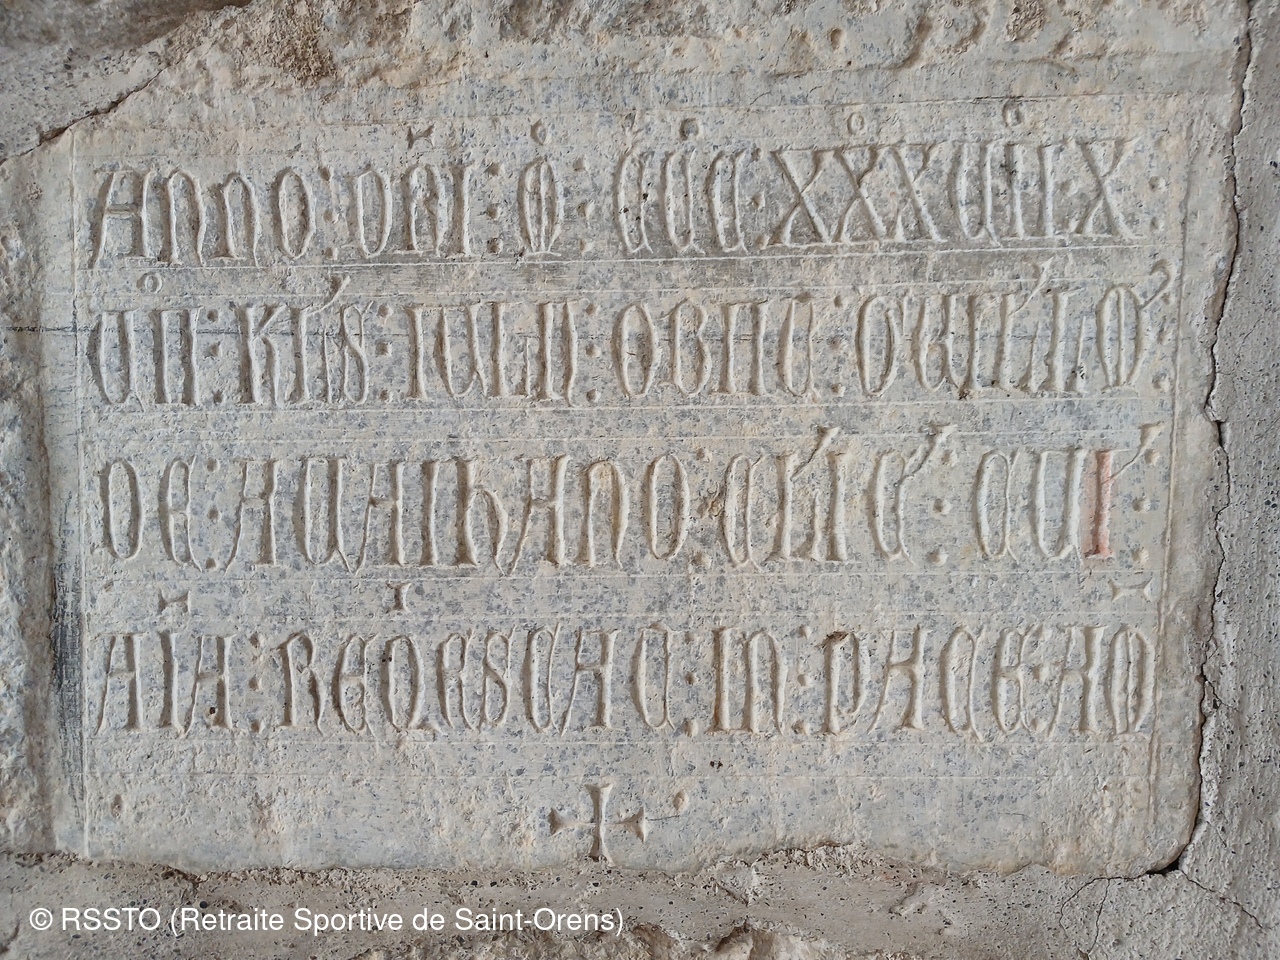 ANNO : DNI : M : CCC : XXXVIIIX :
VII : KLS : IULII : OBIIT : GUILLM :
DE : AUAIHANO : CLIC : CUI :
AIA : REQESCAC : IN : PACE : AM
© RSSTO (Retraite Sportive de Saint-Orens)